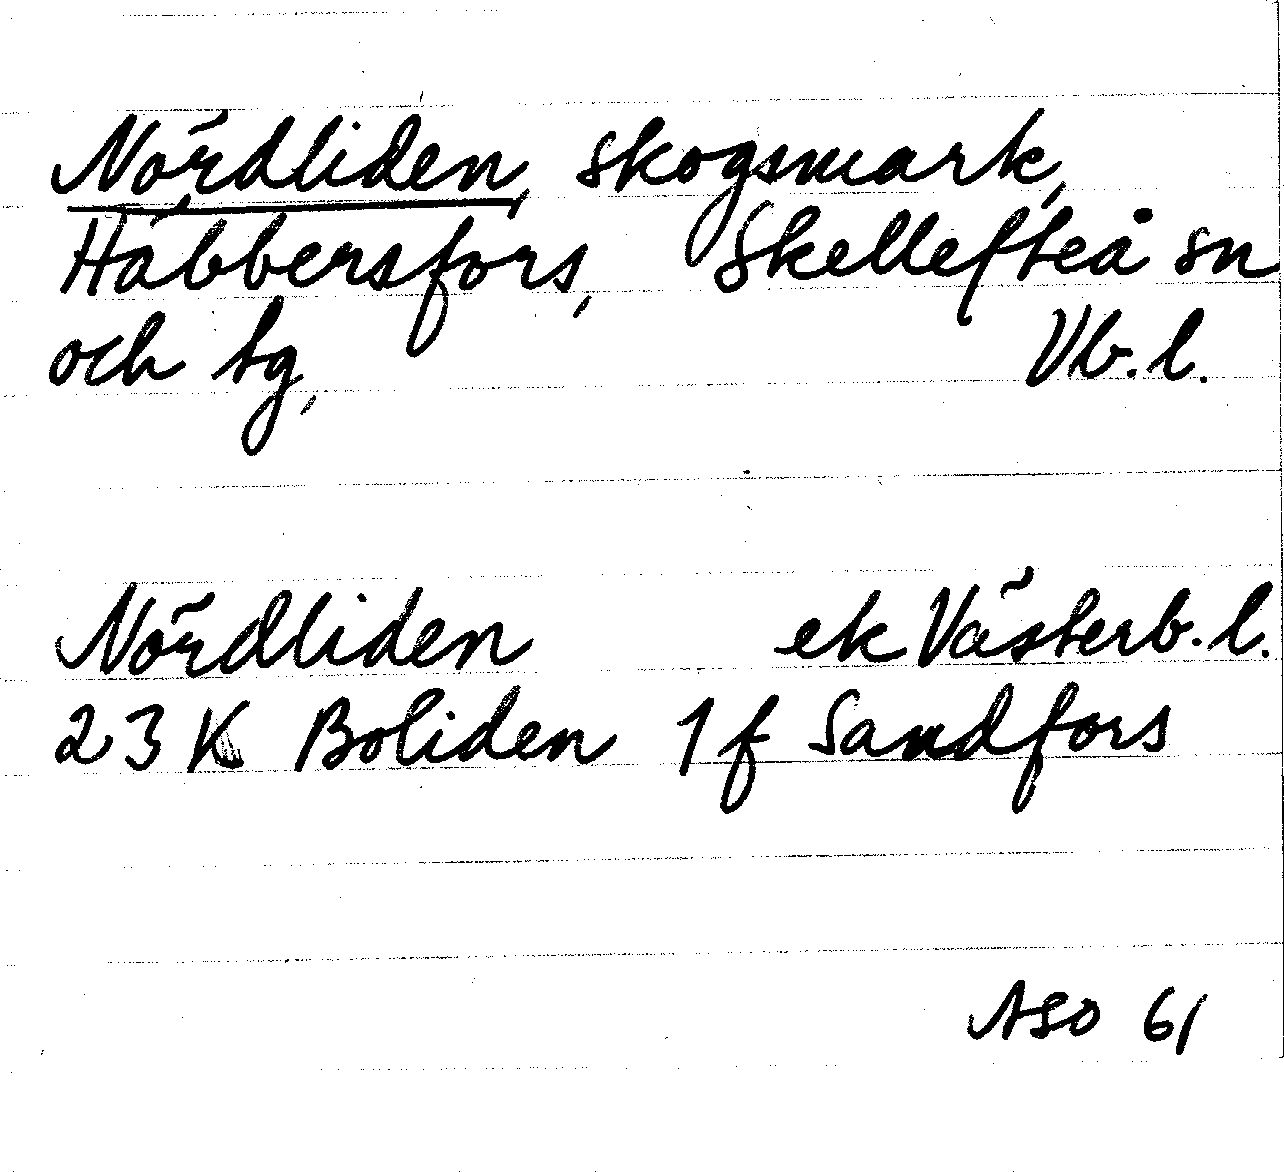 Nördliden, skogsmark,
Häbbersfors, Skellefteå sn
och tg, Vb. l.
Nördliden ek Västerb. l.
23 K Boliden 1 f Sandfors
ASO 61